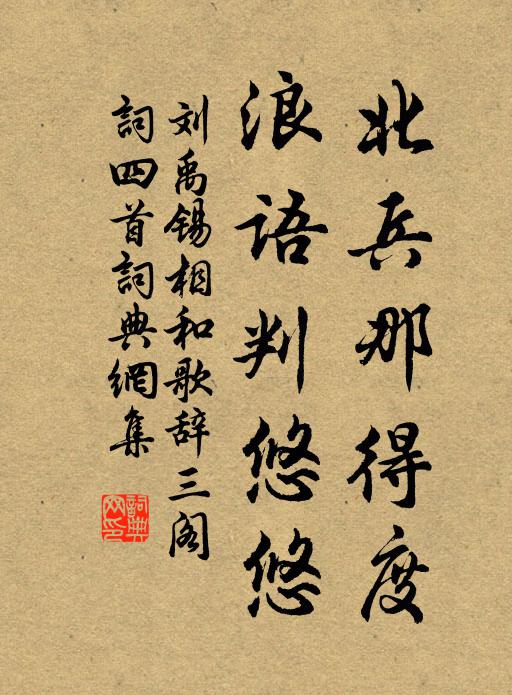 北兵那得度
浪语判悠悠
刘禹锡相和歌辞三阁
词四首词典网集
詞典網印